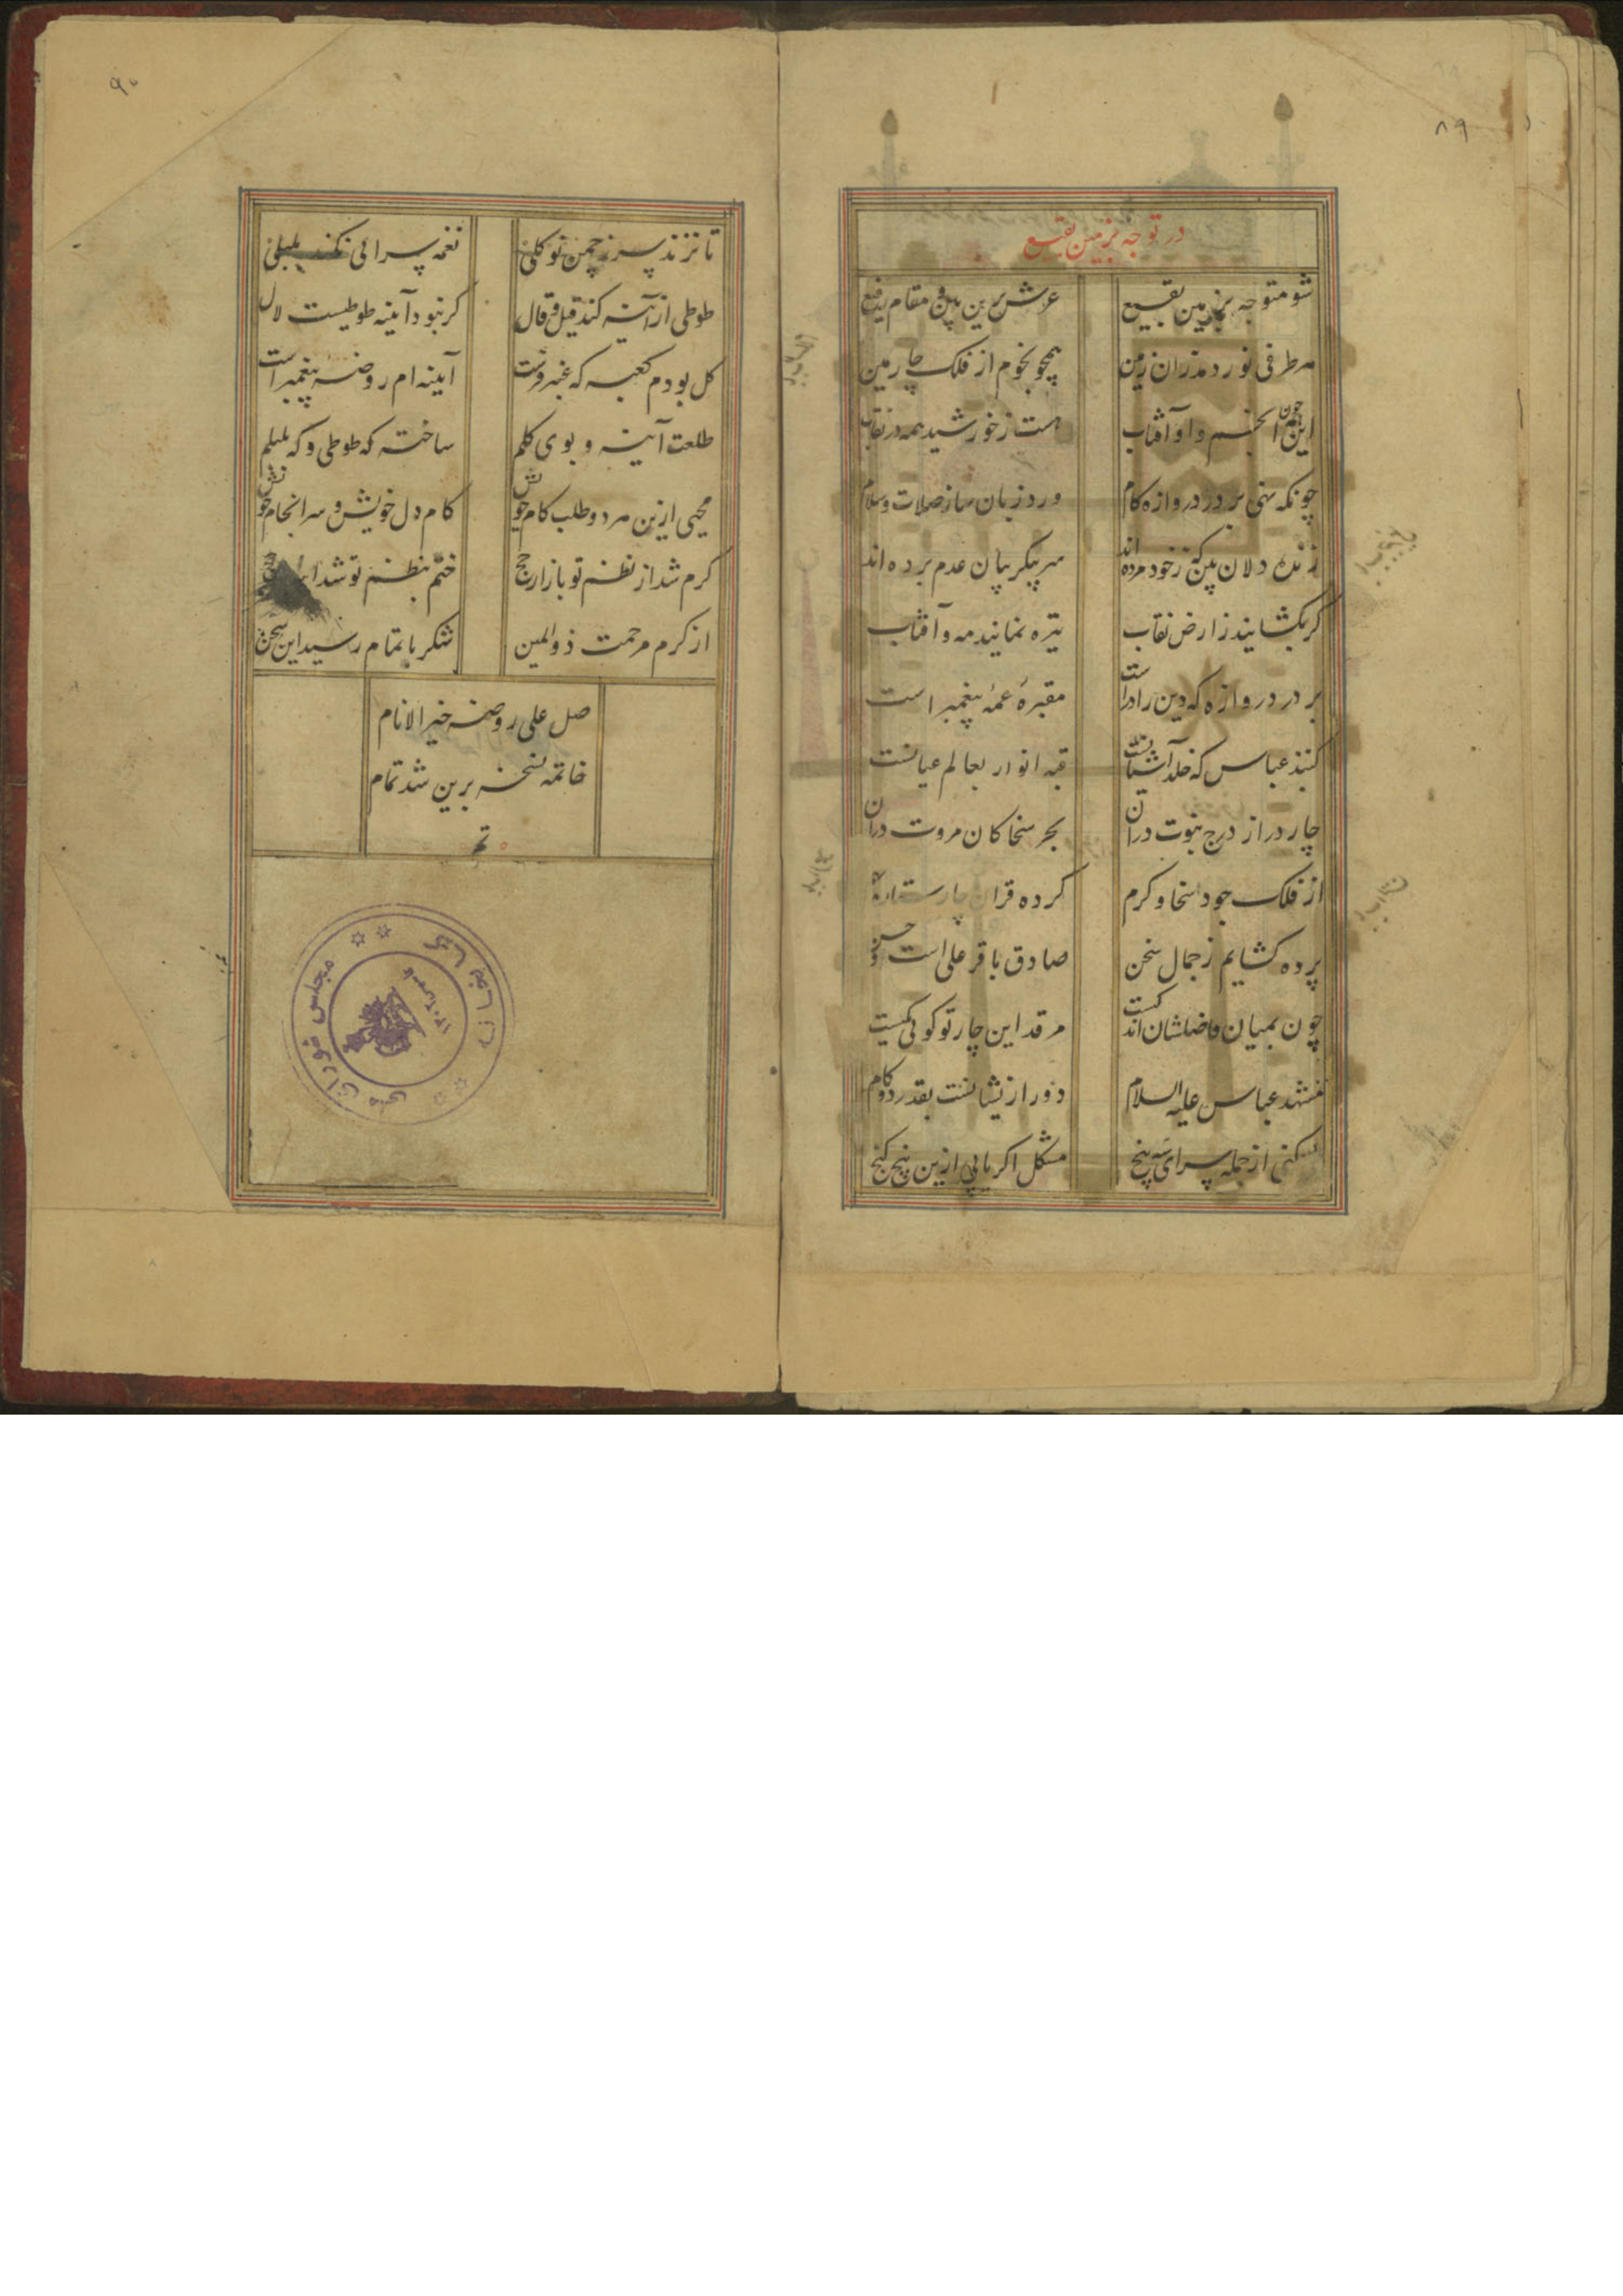 ۸۹
در توجه بزمین بقیع
شو متوجه بزمین بقیع عرش برین بین و مقام رفیع
هر طرفی نور دمد زان زمین همچو نجوم از فلک چارمین
این چون انجم و او آفتاب هست ز خورشید همه در نقاب
چونکه نهی بر در دروازه کام ورد زبان ساز صلات و سلام
زنده دلان بین که ز خود مرده اند سر بگریبان عدم برده اند
گر بگشایند ز ارض نقاب تیره نمایند مه و آفتاب
بر در دروازه که دین را در است مقبرهٔ عمهٔ پیغمبر است
گنبذ عباس که خلد آشیانست قبه انوار بعالم عیانست
چار در از درج نبوت در آن بحر سخا کان مروت در آن
از فلک جود و سخا و کرم کرده قران چار ستاره
پرده گشایم ز جمال سخن صادق باقر علی است حسن
چون بمیان فاصلشان اندکست مرقد این چار تو گوئی یکیست
مشهد عباس علیه السلام دور ازیشانست بقدر دو کام
از جمله سرای سپنج مشکل اگر یابی ازین پنج گنج
۹۰
تا نزند سر ز چمن نو گلی نغمه سرائی نکند بلبلی
طوطی از آینه کند قیل و قال گر نبود آینه طوطیست لال
گل بودم کعبه که عنبر فرست آینه ام روضهٔ پیغمبر است
طلعت آینه و بوی گلم ساخته که طوطی و که بلبلم
محیی ازین هر دو طلب کام خویش کام دل خویش و سرانجام خویش
گرم شد از نظم تو بازار حج ختم بنظم تو شد
از کرم مرحمت ذوالمنن شکر باتمام رسید این سخن
صل علی روضه خیر الانام
خاتمه نسخه برین شد تمام
تم
مجلس شورای ملی
کتابخانه